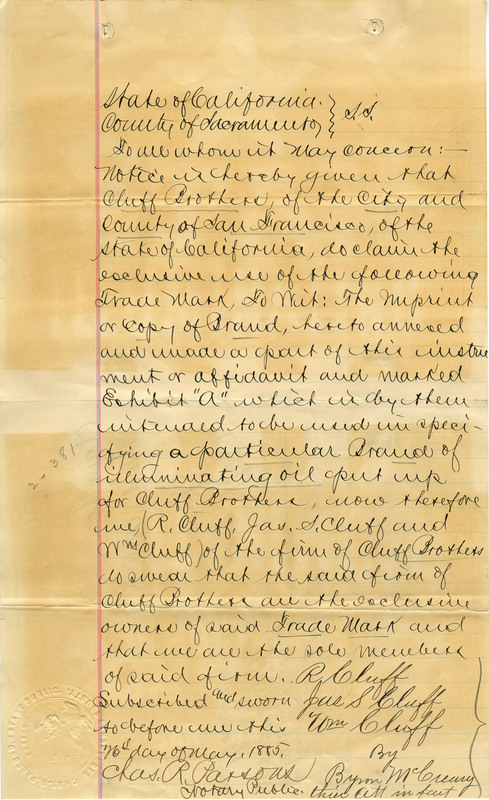 State of California.
County of Sacramento } S.S.
To all whom it May concern:—
Notice is hereby given that
Cluff Brothers, of the City and
County of San Francisco, of the
State of California, do claim the
exclusive use of the following
Trade Mark, To Wit: The Imprint
or copy of Brand, hereto annexed
and made a part of this instru
ment or affidavit and marked
Exhibit "A" which is by them
intended to be used in speci-
fying a particular Brand of
illuminating oil put up
for Cluff Brothers, now therefore
we, (R. Cluff, Jas. S. Cluff and
Wm Cluff) of the firm of Cluff Brothers
do swear that the said firm of
Cluff Brothers are the exclusive
owners of said Trade Mark and
that we are the sole members
of said firm. R. Cluff
Subscribed and sworn Jas S Cluff
to before me this Wm Cluff
day of May, 1885. By
Chas. R. Parsons Byron McCreary
Notary Public. their Att in fact
2-381